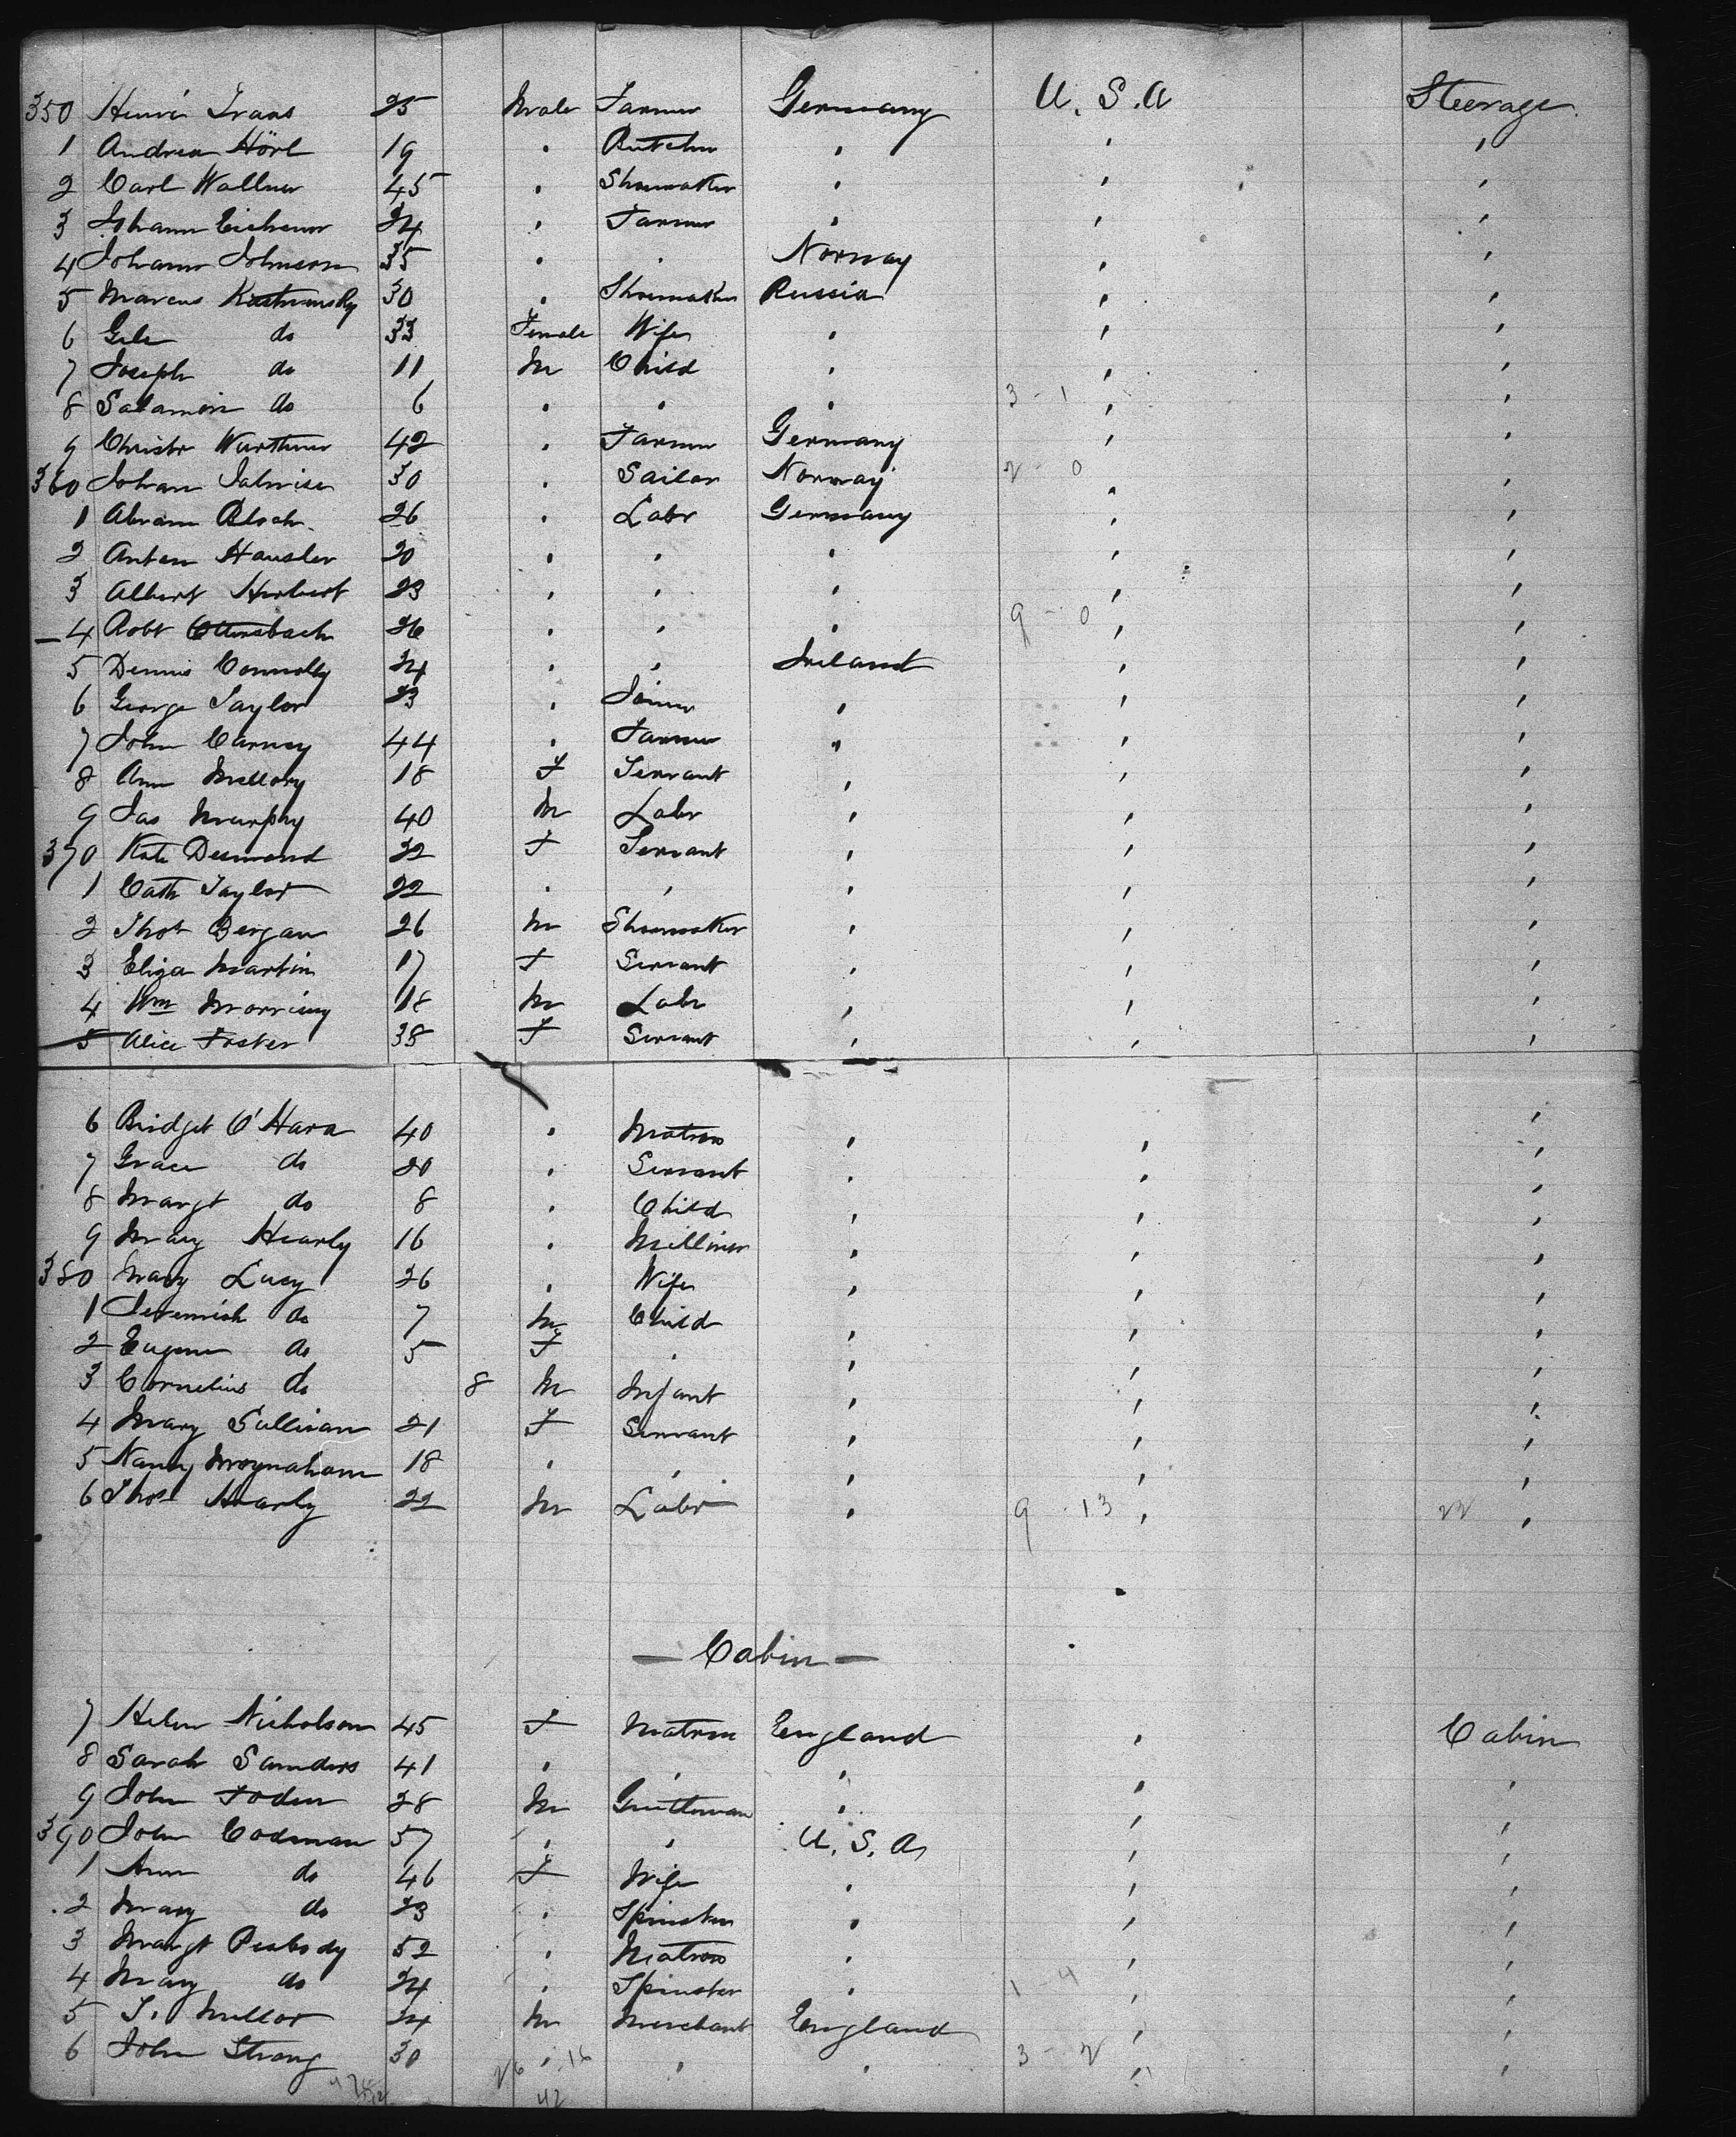 350 Henri Frans 25 Male Farmer Germany U.S.A Steerage
1 Andrea Hörl 19 " Butcher " " "
2 Carl Wallner 45 " Shoemaker " " "
3 Johann Eichner 24 " Farmer " " "
4 Johann Johnson 35 " " Norway " "
5 Marcus 30 " Shoemaker Russia " "
6 do 33 Female Wife " " "
7 Joseph do 11 M Child " " "
8 Salamon do 6 " " " 3 - 1 " "
9 Christr Wurthner 42 " Farmer Germany " "
360 Johan 30 " Sailor Norway 2 - 0 " "
1 Abram Bloch 26 " Labr Germany " "
2 Anton Hausler 20 " " " " "
3 Albert Herbert 23 " " " " "
4 Robt 26 " " " 9 - 0 " "
5 Dennis Connolly 24 " " Ireland " "
6 George Taylor 23 " Joiner " " "
7 John Carney 44 " Farmer " " "
8 Ann Mellory 18 F Servant " " "
9 Jas Murphy 40 M Labr " " "
370 Kate Desmond 22 F Servant " " "
1 Cath Taylor 22 " " " " "
2 Thos Bergan 26 M Shoemaker " " "
3 Eliza Martin 17 F Servant " " "
4 Wm 18 M Labr " " "
5 Alice Foster 38 F Servant " " "
6 Bridget O'Hara 40 " Matron " " "
7 Grace do 20 " Servant " " "
8 Margt do 8 " Child " " "
9 Mary Hearly 16 " Milliner " " "
380 Mary Lucy 26 " Wife " " "
1 Jeremiah do 7 M Child " " "
2 Eugene do 5 F " " " "
3 Cornelius do 8 M Infant " " "
4 Mary Sullivan 21 F Servant " " "
5 Nanny Moynaham 18 " " " " "
6 Thos Hearly 22 M Labr " 9 - 13 " 22 "
— Cabin —
7 Helen Nicholson 45 F Matron England " Cabin
8 Sarah Saunders 41 " " " " "
9 John Foden 28 M Gentleman " " "
390 John Codman 57 " " U.S.A. " "
1 Ann do 46 F Wife " " "
2 Mary do 23 " Spinster " " "
3 Margt Peabody 52 " Matron " " "
4 Mary do 24 " Spinster " 1 - 4 " "
5 T. Mellor 24 M Merchant England " "
6 John Strang 30 " " " 3 - 2 " "
26 16
42